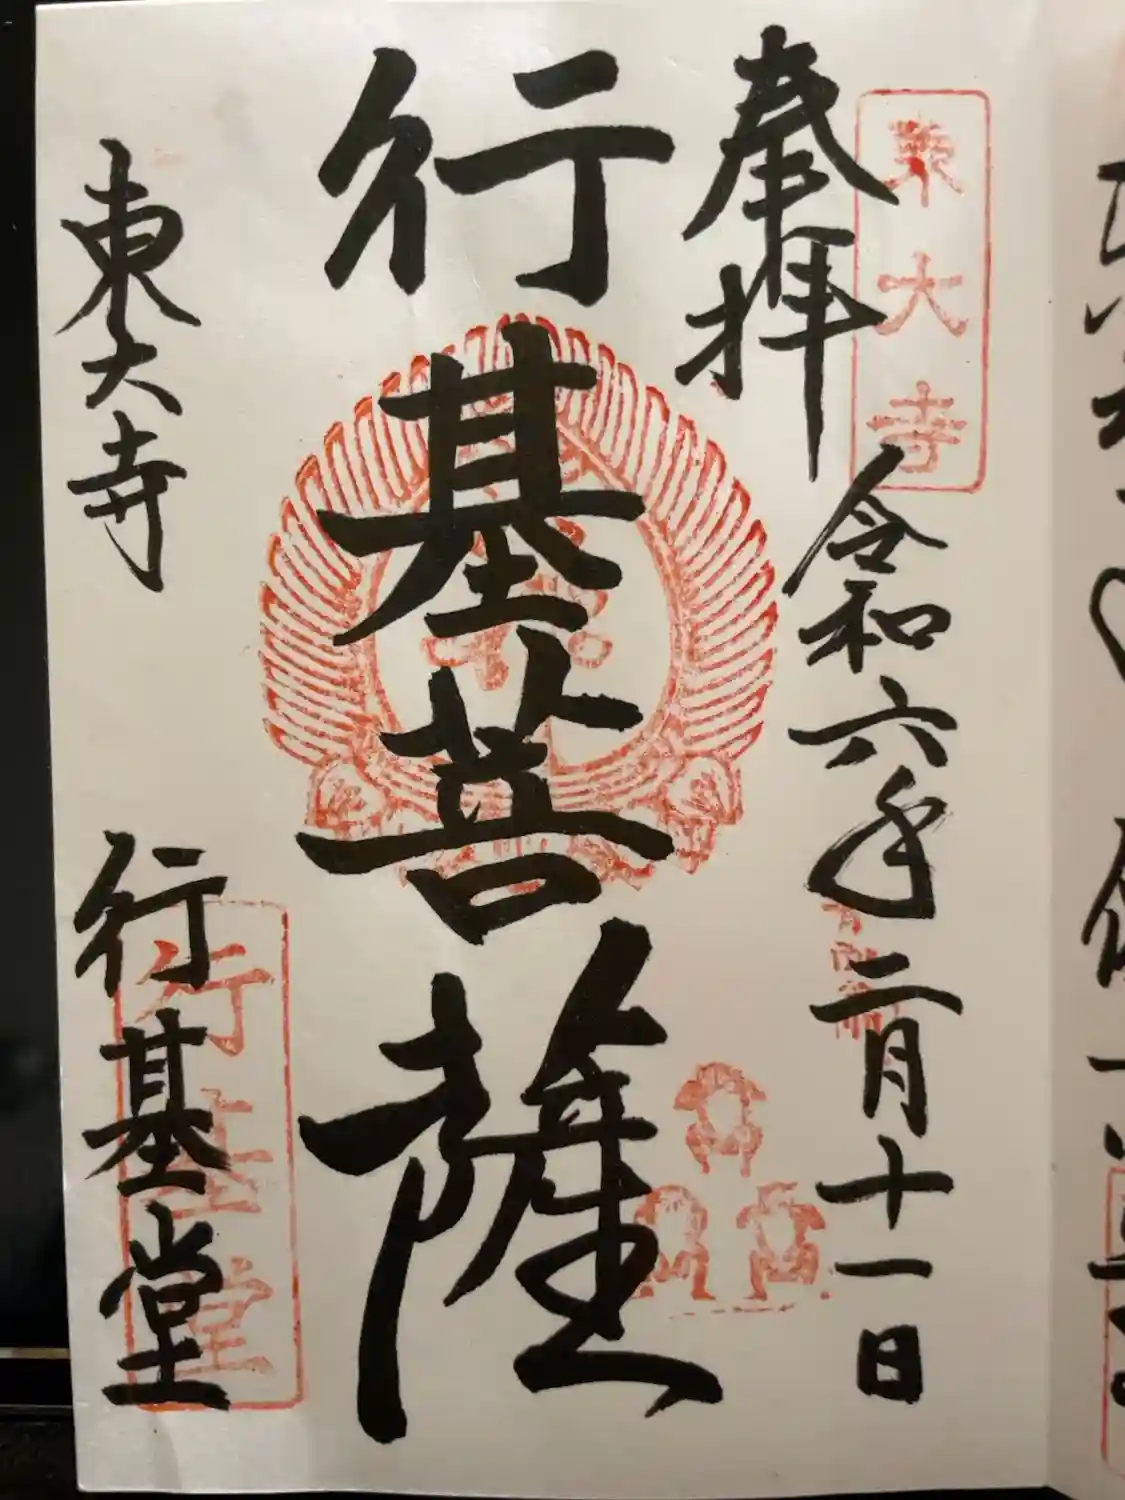 東大寺
奉拝
令和六年二月十一日
行基菩薩
東大寺
行基堂
行基堂